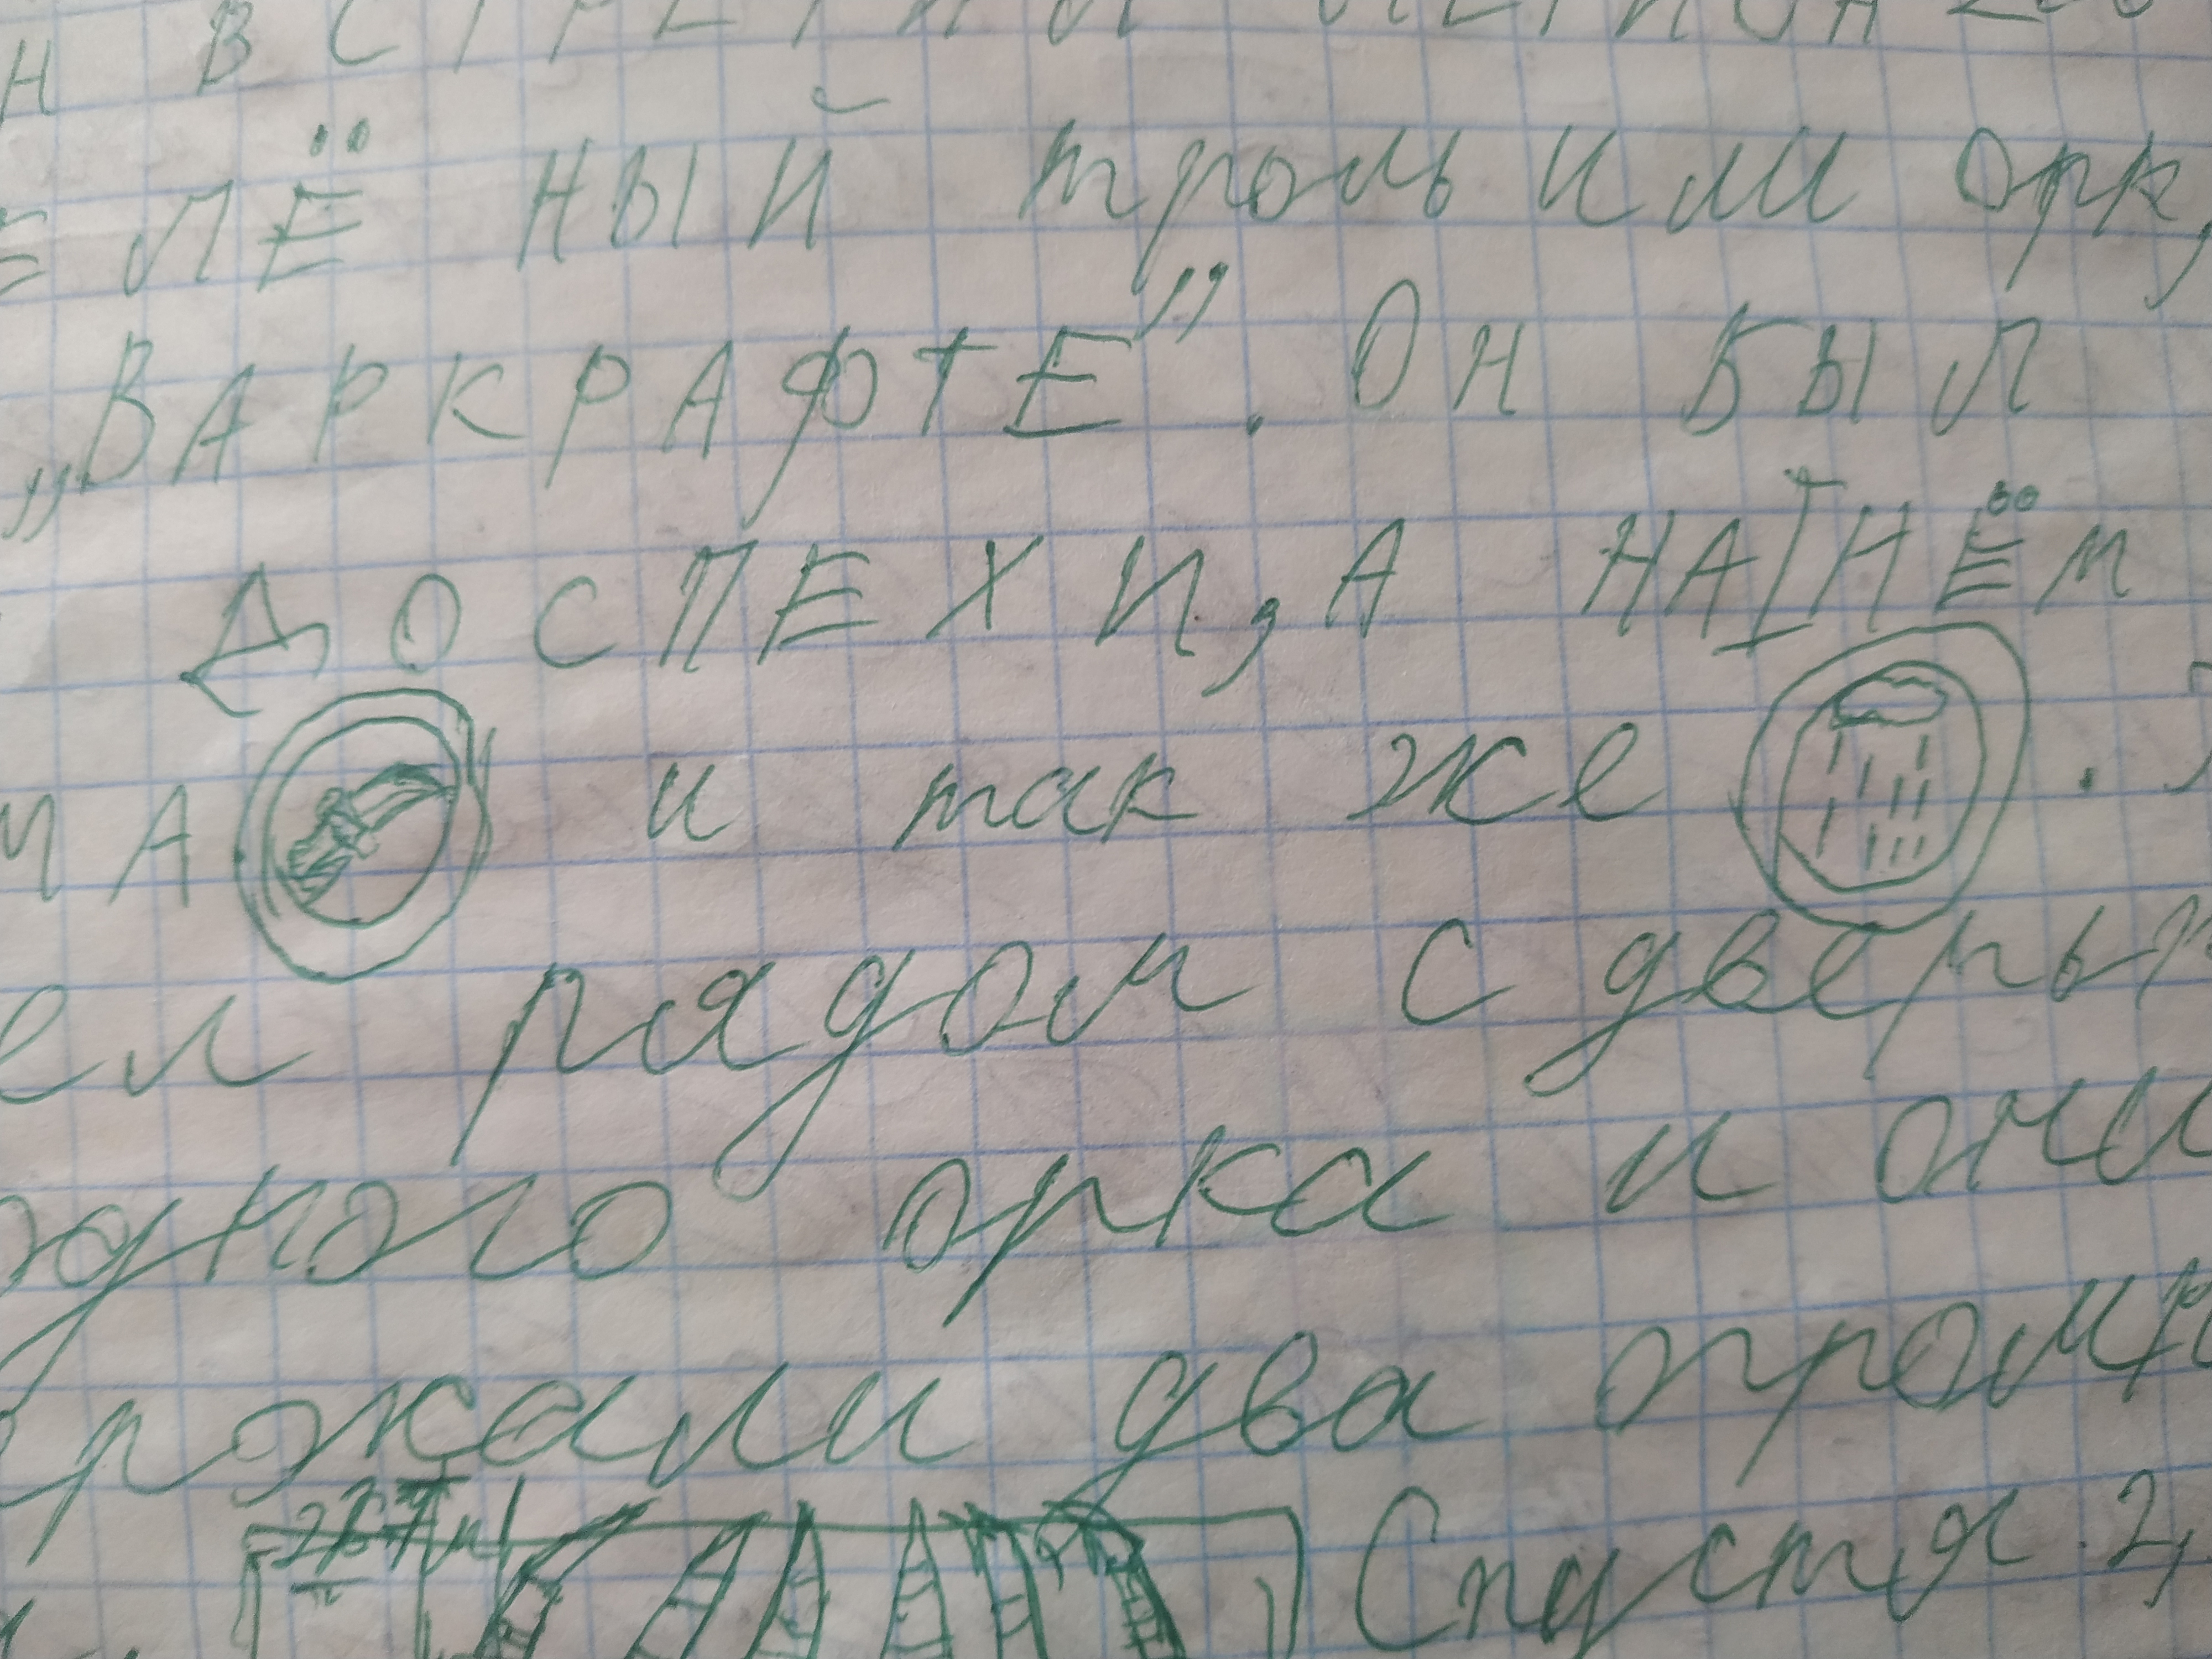 Н ВСТРЕТИЛ
ЕЛЁНЫЙ троль или орк,
„ВАРКРАФТЕ”. ОН БЫЛ
ДОСПЕХИ, А НА НЁМ
МА и так же .
ел рядом с дверью
одного орка и они
рожали два
Спустя 2,